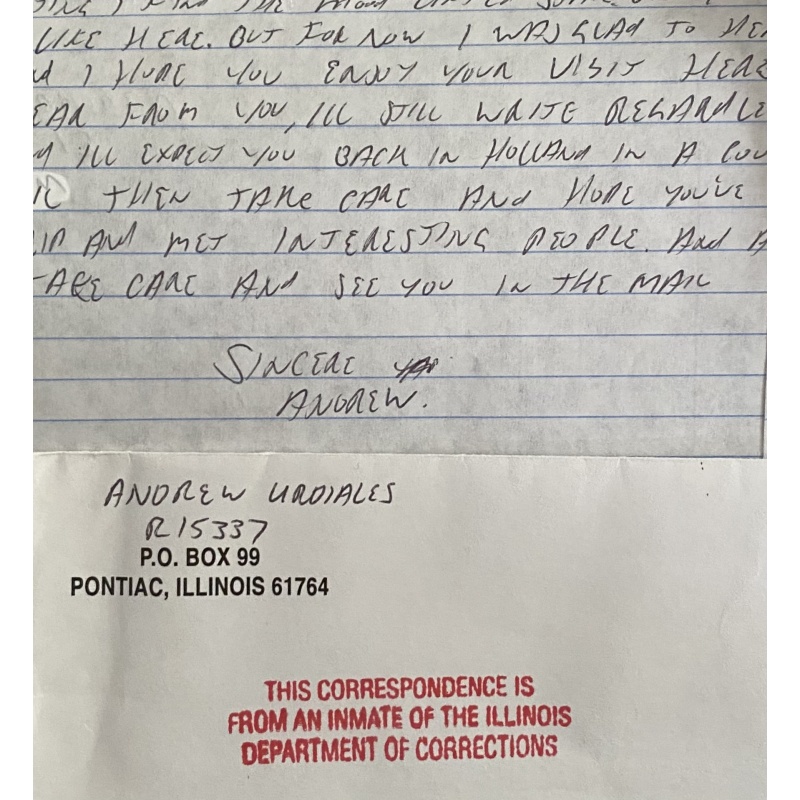 LIKE HERE. BUT FOR NOW I WAS GLAD TO HEA
I HOPE YOU ENJOY YOUR VISIT HERE
EAR FROM YOU, ILL STILL WRITE REGARDLE
ILL EXPECT YOU BACK IN HOLLAND IN A COU
THEN TAKE CARE AND HOPE YOU'VE
IP AND MET INTERESTING PEOPLE. AND A
TAKE CARE AND SEE YOU IN THE MAIL
SINCERE
ANDREW.
ANDREW URDIALES
R15337
P.O. BOX 99
PONTIAC, ILLINOIS 61764
THIS CORRESPONDENCE IS
FROM AN INMATE OF THE ILLINOIS
DEPARTMENT OF CORRECTIONS